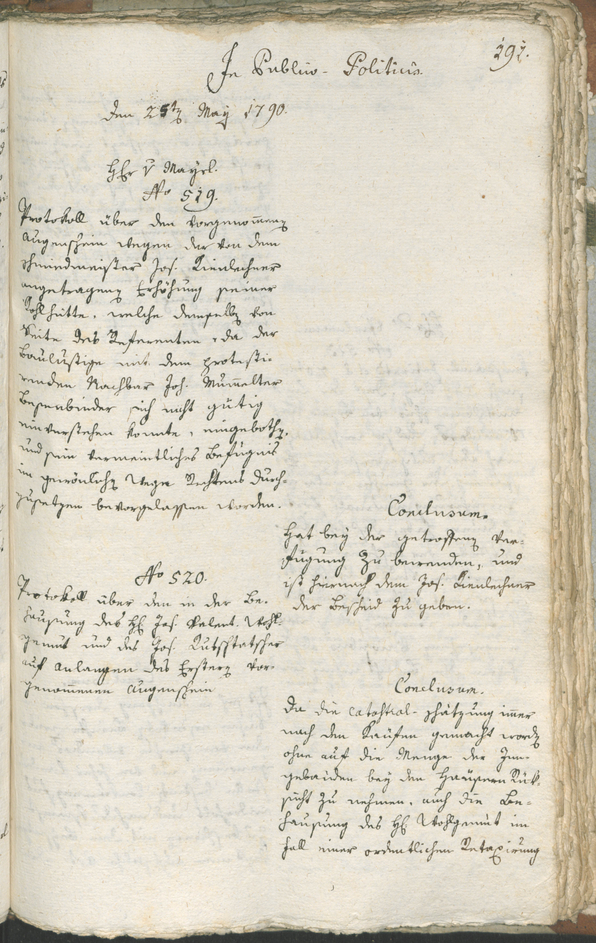 292.
In Publico-Politicis.
den 25ten May 1790.
HEr v Mayrl.
No 519.
Protokoll über den vorgenommenen
Augenschein wegen der von dem
Schmiedmeister Jos. Kienlechner
angetragenen Erhöhung seiner
Kohlhütte, welche demselben von
Seite des Referenten, da der
Baulustige mit dem protesti-
renden Nachbar Joh. Mumelter
Besenbinder sich nicht gütig
einverstehen konnte, eingebothen,
und sein vermeintliches Befugnis
im gewönlichen Wege Rechtens durch-
zusetzen bevorgelassen worden.
Conclusum.
Hat bey der getroffenen Ver-
fügung zu bewenden, und
ist hiernach dem Jos. Kienlechner
der Bescheid zu geben.
No 520.
Protokoll über den in der Be-
hausung des H Jos. Valent. Wohl-
gemut und des Jos.
auf Anlangen des Erstern vor-
genommenen Augenschein
Conclusum.
Da die Catastral-Schätzung immer
nach den Kaufen gemacht worden
ohne auf die Menge der Inn-
gebäuden bey den Häusern Rük-
sicht zu nehmen, auch die Be-
hausung des H Wohlgemut im
Fall einer ordentlichen Retaxirung